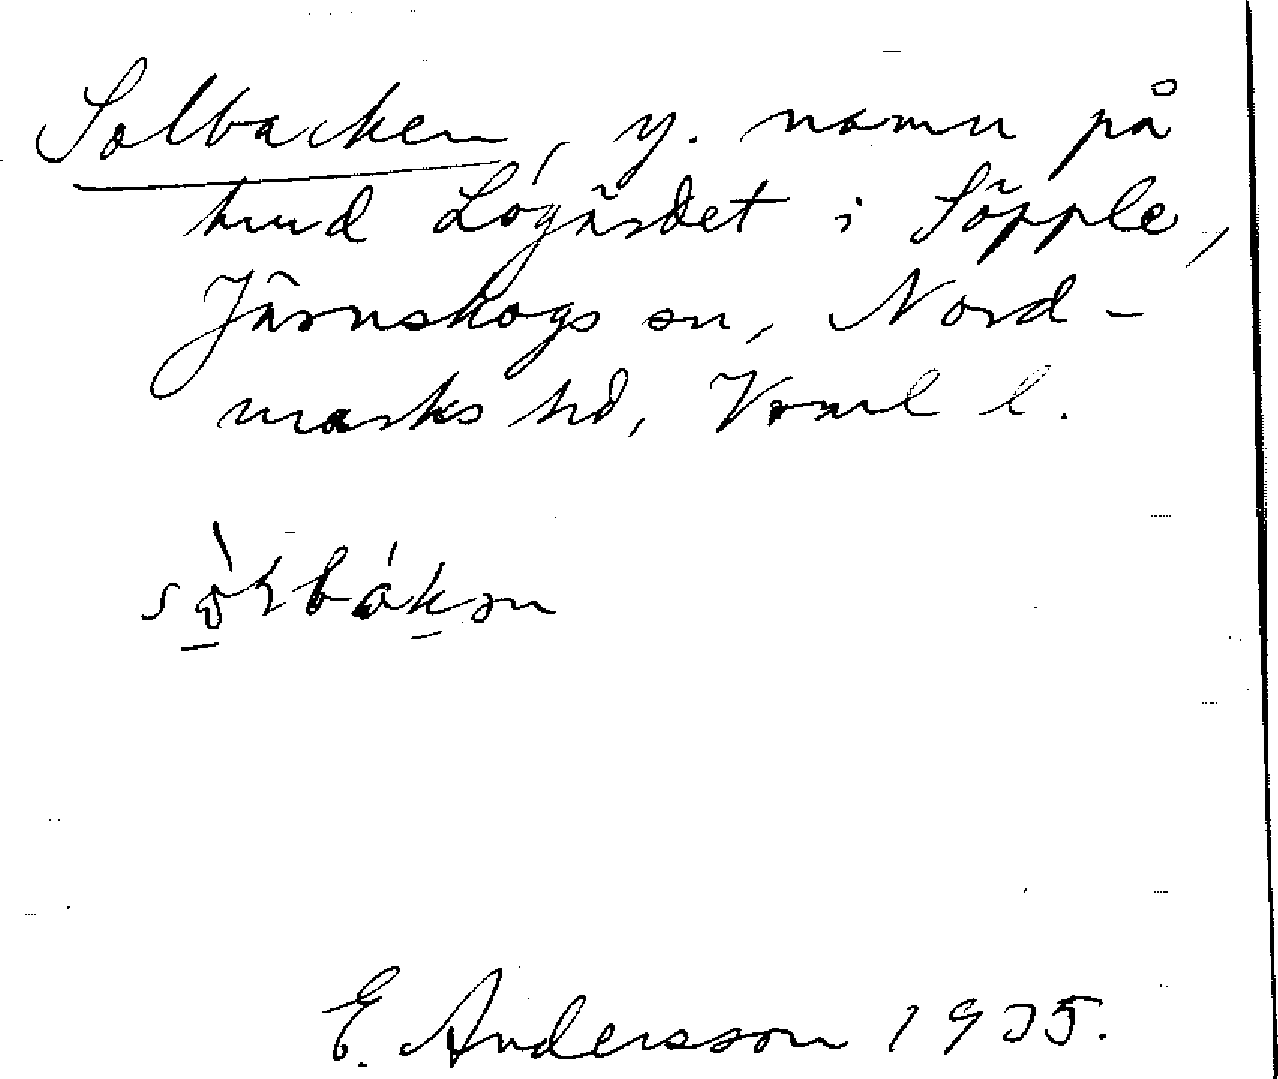 Solbacken, y. namn på
hmd Lögärdet i Söpple,
Järnskogs sn, Nord-
marks hd, Vrml l.
E. Andersson 1935.